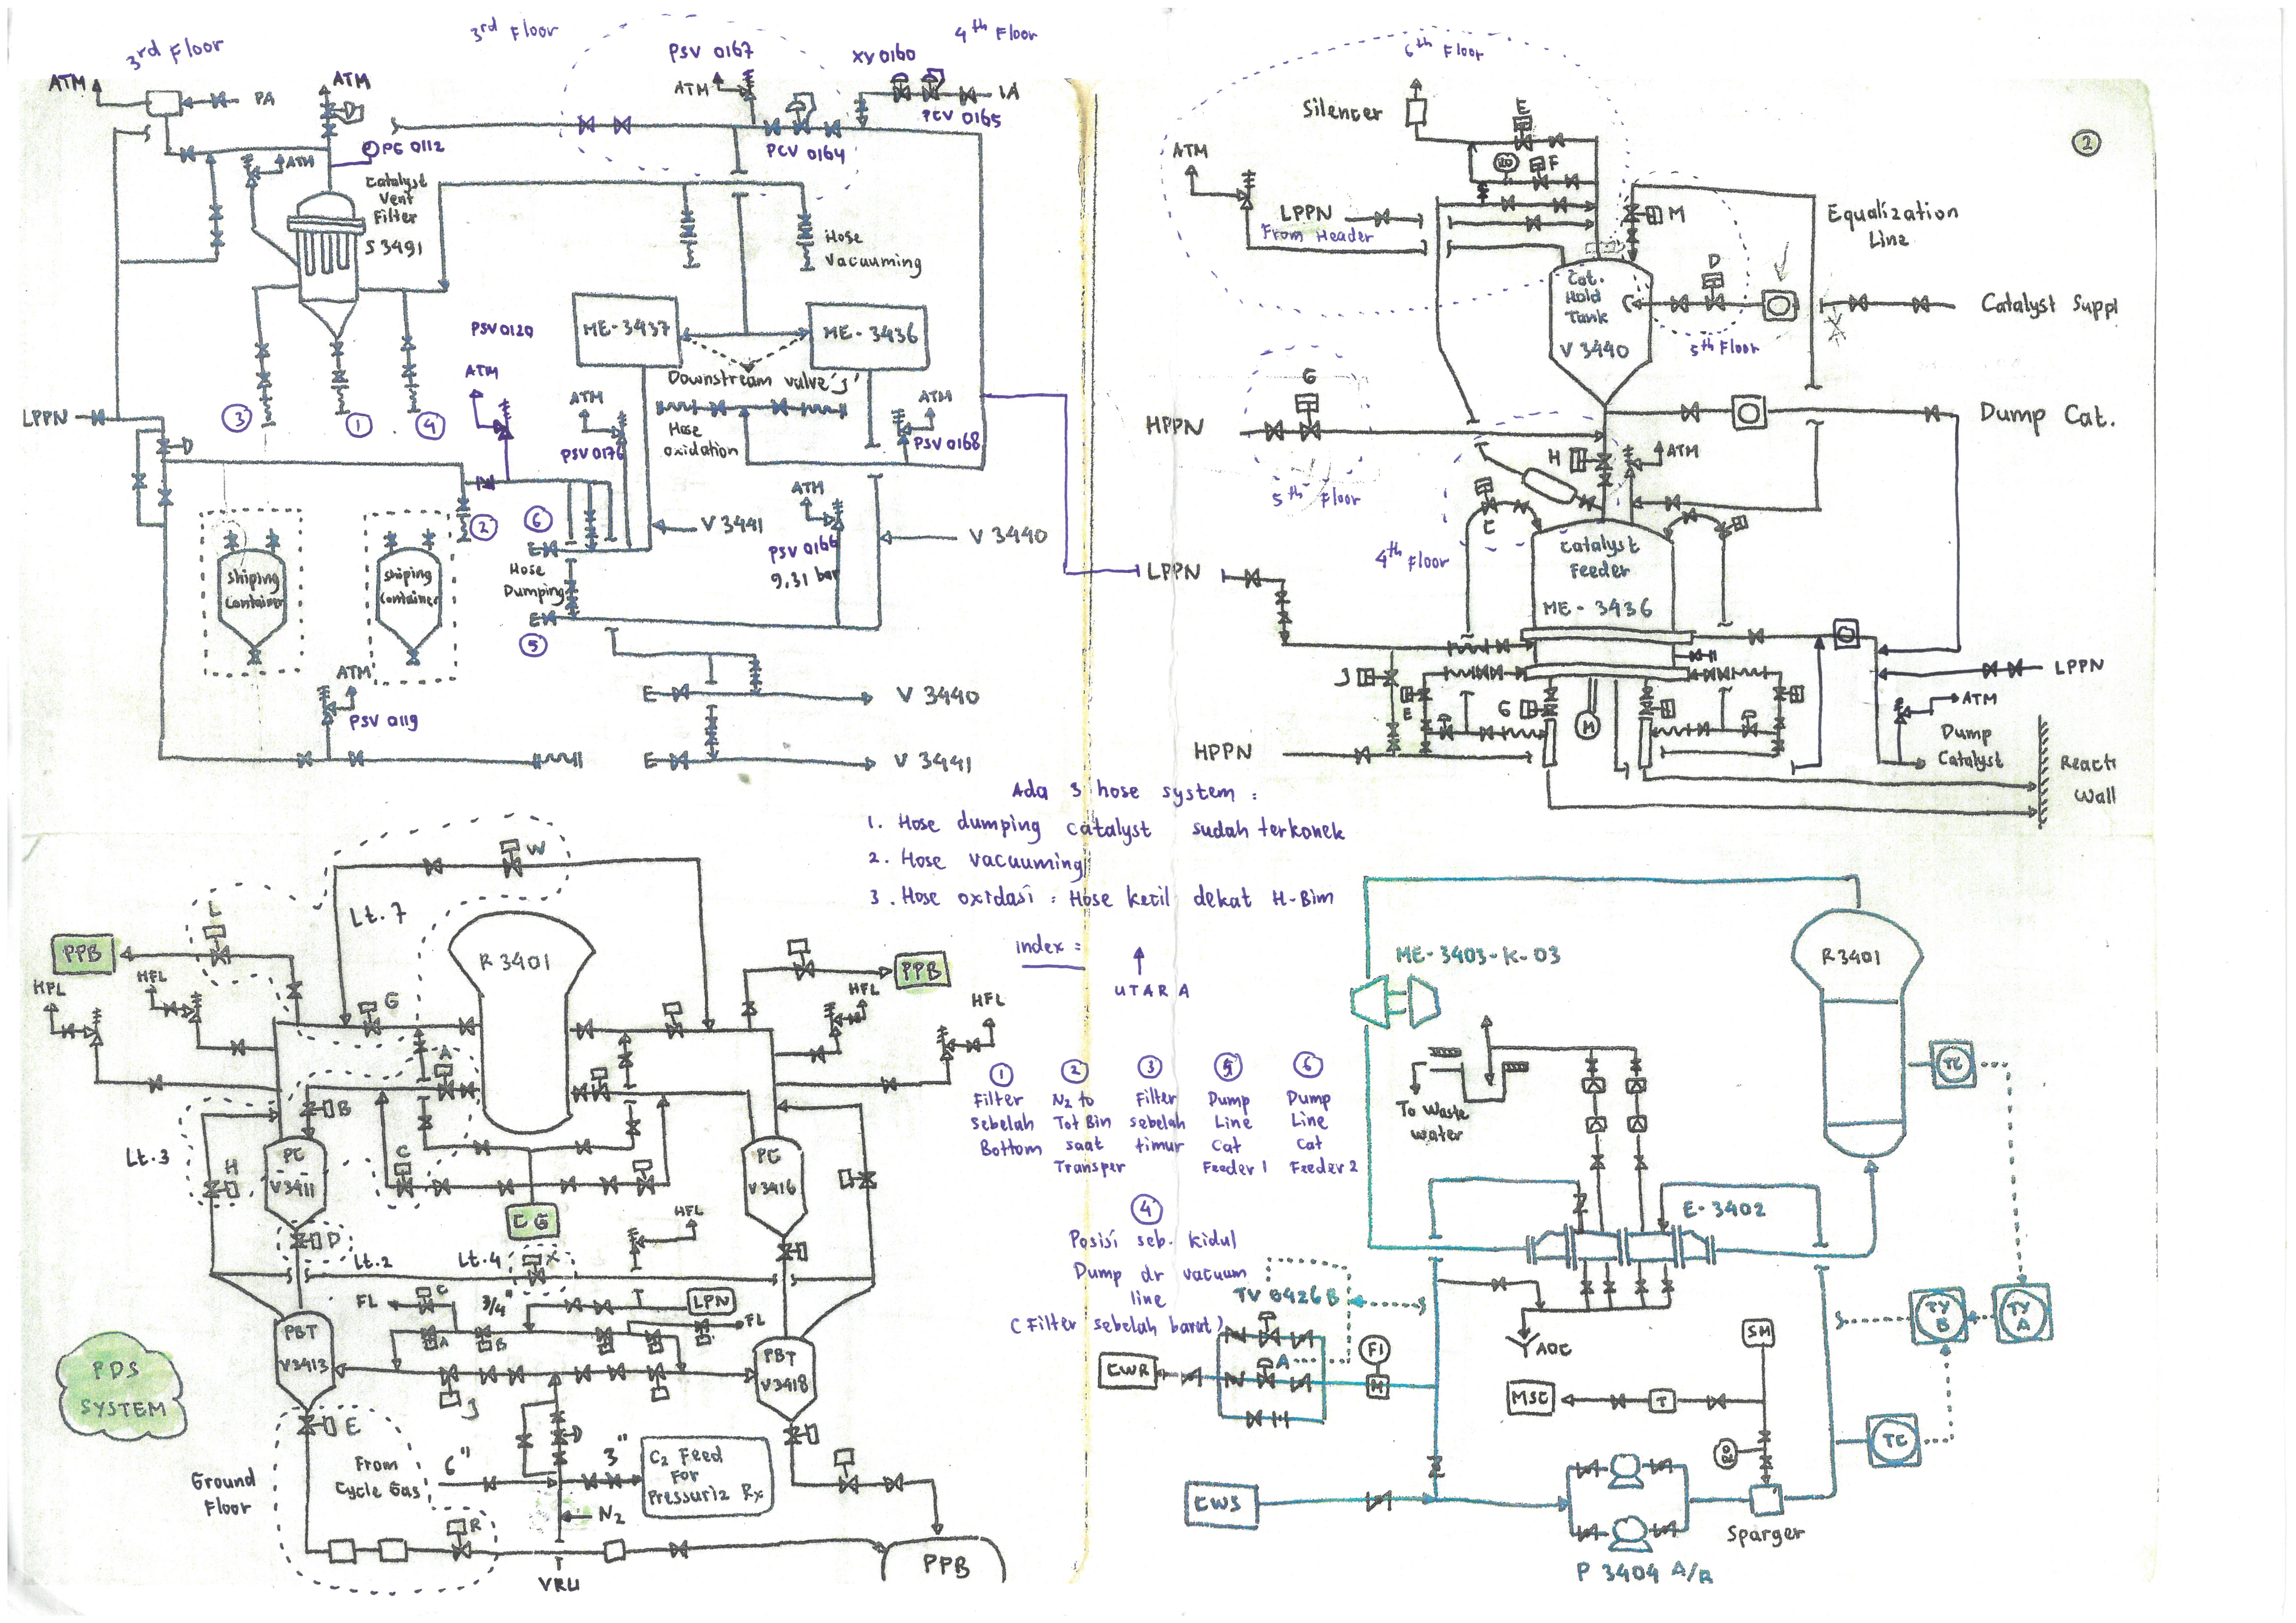 3rd Floor
3rd Floor
PSV 0167
XV 0160
4th Floor
ATM
PA
ATM
ATM
IA
PCV 0165
PCV 0164
PG 0112
ATM
Catalyst
Vent
Filter
S 3491
Hose
Vacuuming
PSV 0120
ME-3437
ME-3436
Downstream valve 'J'
ATM
ATM
ATM
Hose
oxidation
PSV 0176
PSV 0168
LPPN
3
1
4
2
6
5
Shiping
Container
Shiping
Container
V 3441
V 3440
ATM
PSV 0166
9.31 bar
E
Hose
Dumping
E
ATM
PSV 0119
E
V 3440
E
V 3441
6th Floor
2
Silencer
E
F
RO
ATM
LPPN
From Header
M
Equalization
Line
D
Cat.
Hold
Tank
V 3440
Catalyst Suppl
5th Floor
G
HPPN
Dump Cat.
H
ATM
5th Floor
C
4th Floor
Catalyst
Feeder
ME - 3436
LPPN
J
E
G
M
LPPN
ATM
HPPN
Dump
Catalyst
React
Wall
Ada 3 hose system :
1. Hose dumping catalyst sudah terkonek
2. Hose vacuuming
3. Hose oxidasi : Hose kecil dekat H-Bim
index :
UTARA
1
Filter
sebelah
Bottom
2
N2 to
Tot Bin
saat
Transper
3
Filter
sebelah
timur
5
Dump
Line
Cat
Feeder 1
6
Dump
Line
Cat
Feeder 2
4
Posisi seb. kidul
Dump dr vacuum
line
( Filter sebelah barat )
W
Lt.7
L
PPB
HFL
HFL
G
R 3401
PPB
HFL
HFL
A
B
Lt.3
H
C
PC
V3411
PC
V3416
CG
HFL
D
Lt.2
Lt.4
X
FL
C
3/4"
LPN
FL
PBT
V3413
A
B
J
PBT
V3418
PDS
SYSTEM
E
Ground
Floor
From
Cycle Gas
6"
3"
C2 Feed
For
Pressuriz Rx
N2
R
VRU
PPB
ME-3403-K-03
R3401
TC
To Waste
water
E-3402
TV 0426 B
A
CWR
FI
M
AOC
TY
B
TY
A
SM
MSC
T
TC
CWS
Sparger
P 3404 A/B